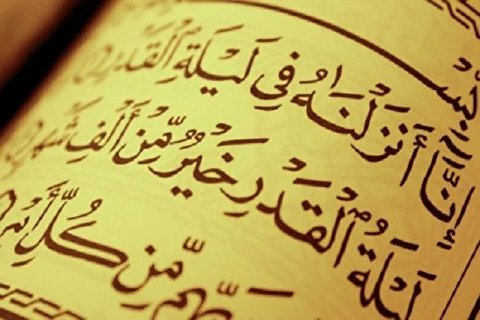 إِنَّا أَنزَلْنَاهُ فِي لَيْلَةِ الْقَدْرِ
لَيْلَةُ الْقَدْرِ خَيْرٌ مِّنْ أَلْفِ شَهْرٍ
رَبِّهِم مِّن كُلِّ أَمْرٍ